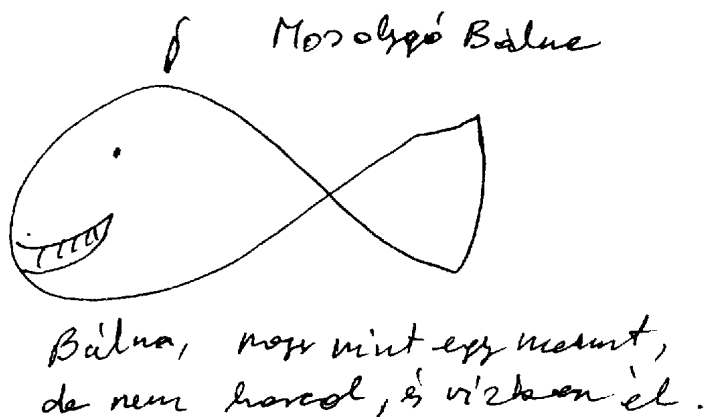 Mosolygó Bálna
Bálna, nagy mint egy mamut,
de nem harcol, és vízben él.